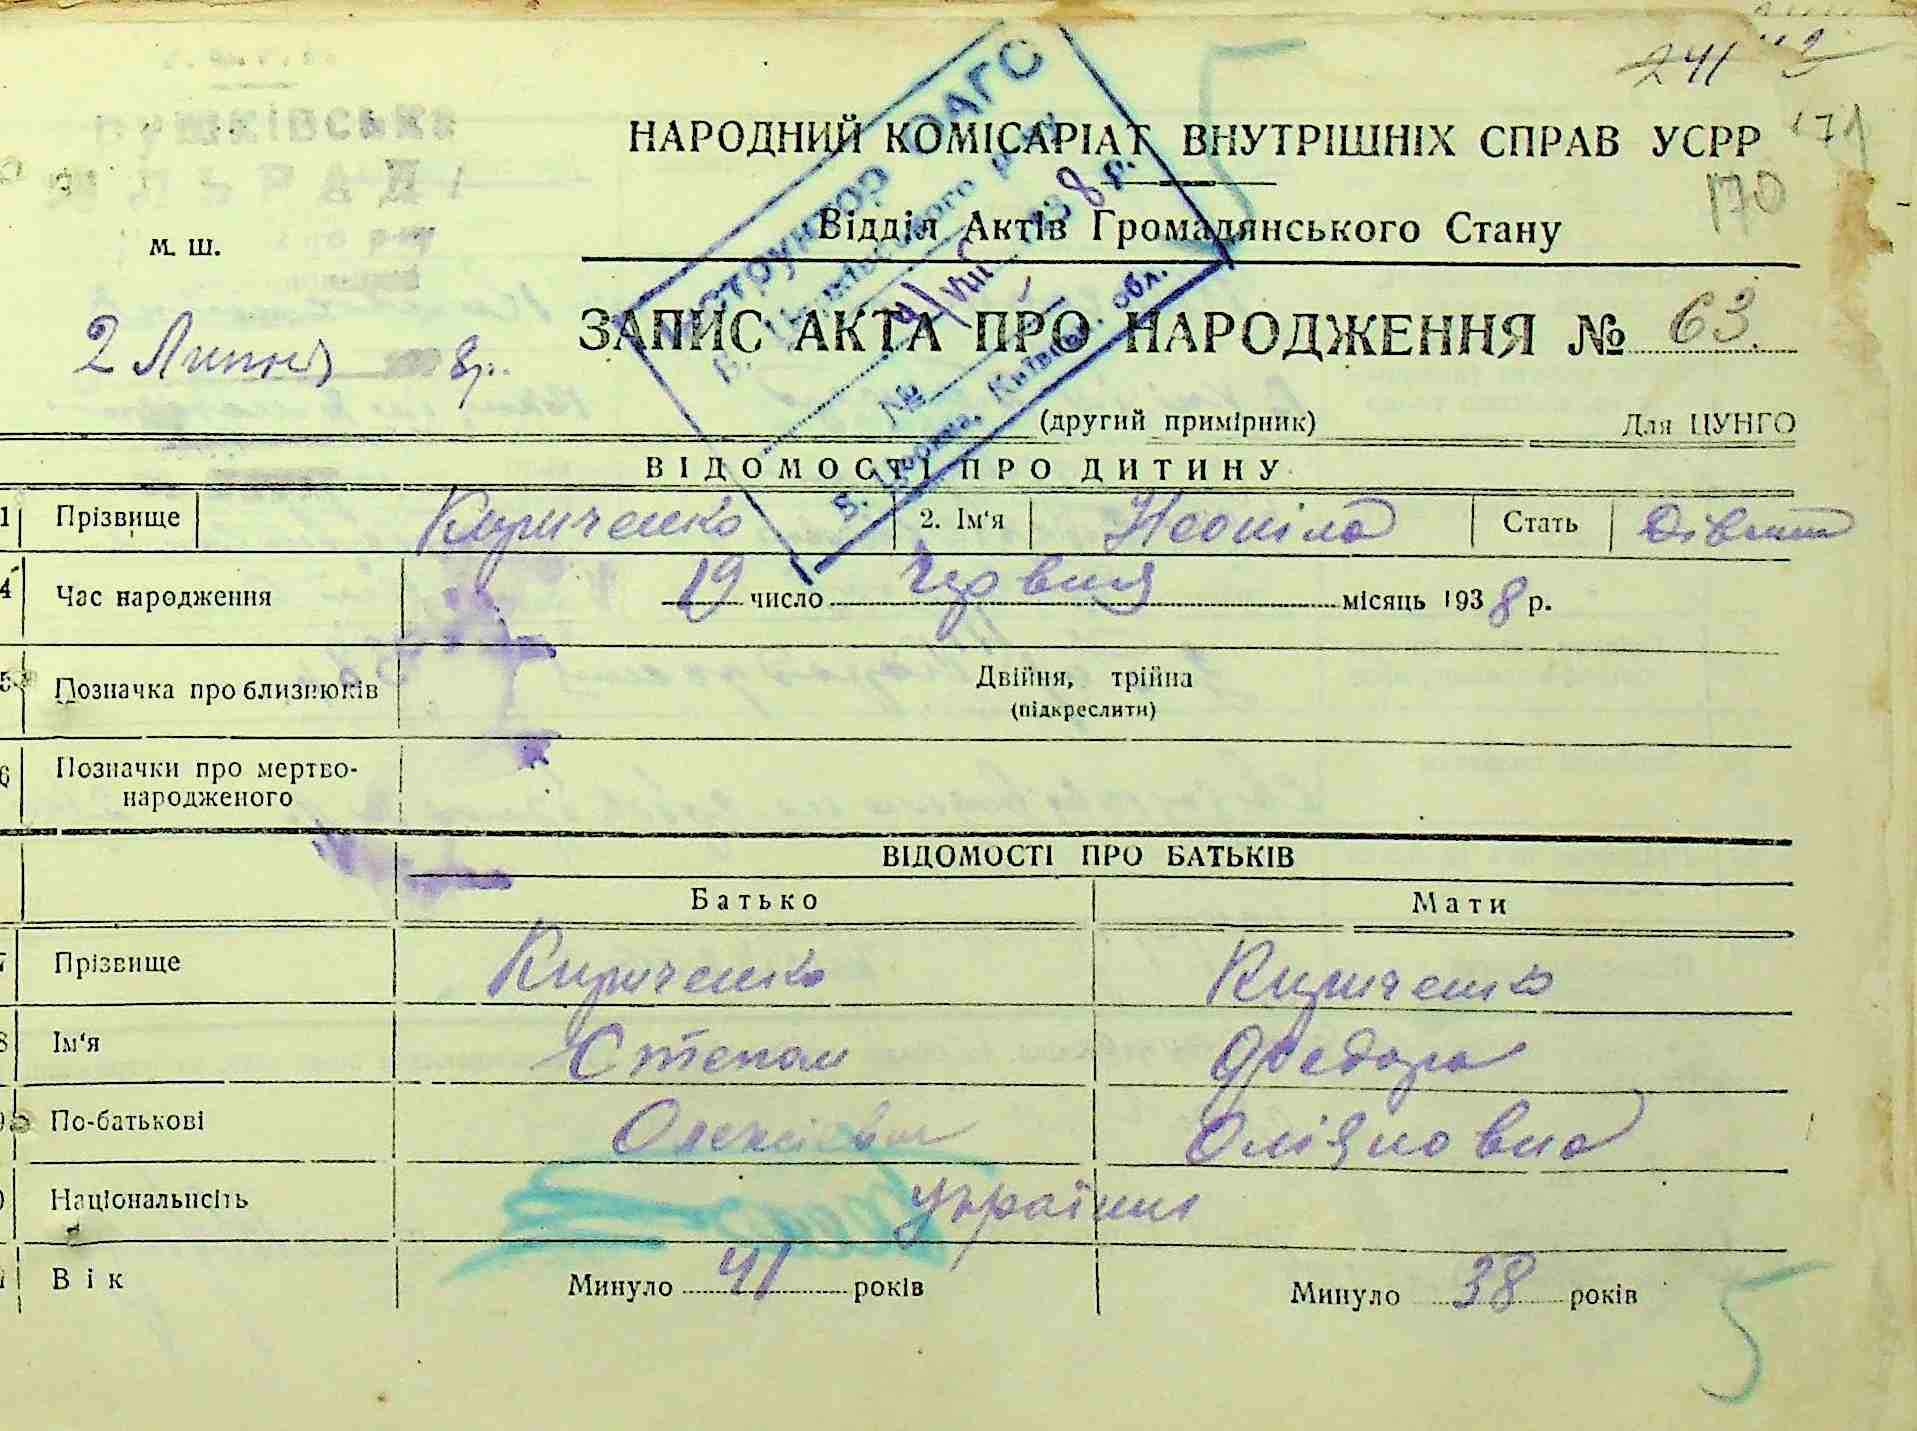 241
НАРОДНИЙ КОМІСАРІАТ ВНУТРІШНІХ СПРАВ УСРР
171
170
Відділ Актів Громадянського Стану
м. ш.
ЗАПИС АКТА ПРО НАРОДЖЕННЯ № 63.
2 Липня 8р.
(другий примірник) Для ЦУНГО
Інструктор ОАГС
VIII 1938 р.
№
Б. Церква, Київськ. обл.
ВІДОМОСТІ ПРО ДИТИНУ
1 Прізвище Кириченко 2. Ім'я Неоніла Стать Дівчина
4 Час народження 19 число Червня місяць 1938 р.
5 Позначка про близнюків Двійня, трійня
(підкреслити)
6 Позначки про мертво-
народженого
ВІДОМОСТІ ПРО БАТЬКІВ
Батько Мати
7 Прізвище Кириченко Кириченко
8 Ім'я Степан Федора
9 По-батькові Олексієвич Оліяновна
Національність українці
Вік Минуло 41 років Минуло 38 років
5
5